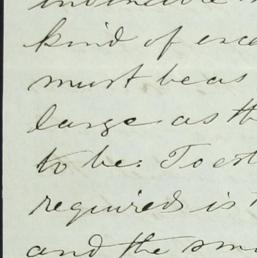 kind of
must be as
large as th
to be. To
required is
and the sm